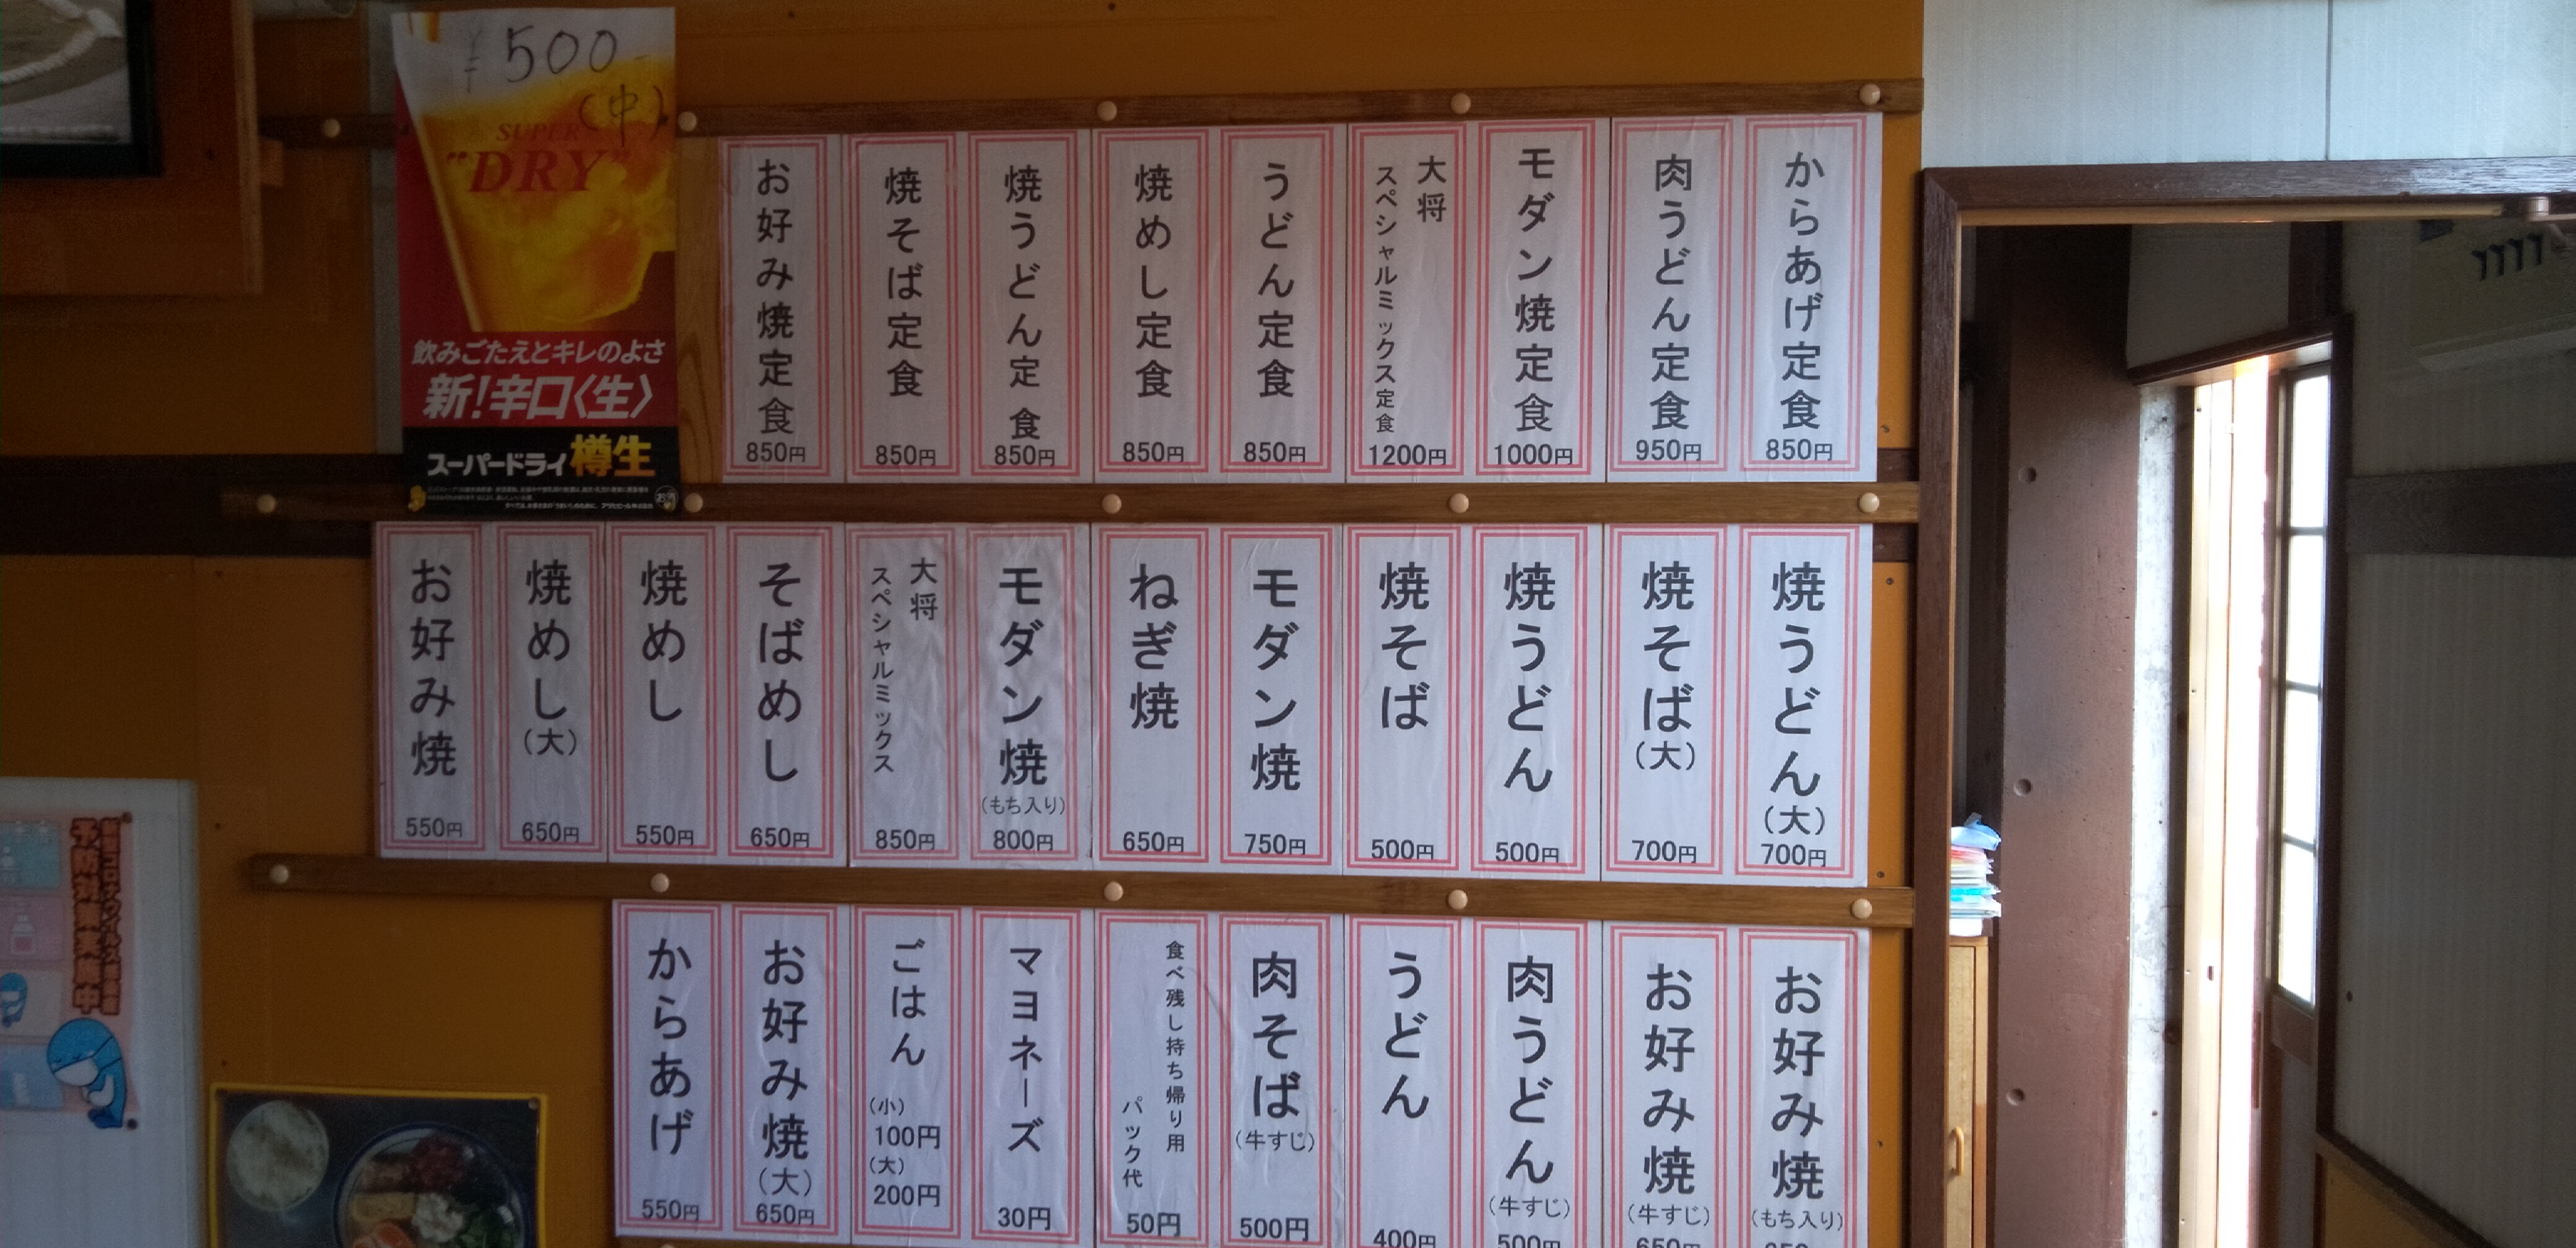 ¥500
(中)
SUPER
"DRY"
飲みごたえとキレのよさ
新!辛口〈生〉
スーパードライ樽生
からあげ定食
850円
肉うどん定食
950円
モダン焼定食
1000円
大将
スペシャルミックス定食
1200円
うどん定食
850円
焼めし定食
850円
焼うどん定食
850円
焼そば定食
850円
お好み焼定食
850円
焼うどん
(大)
700円
焼そば
(大)
700円
焼うどん
500円
焼そば
500円
モダン焼
750円
ねぎ焼
650円
モダン焼
(もち入り)
800円
大将
スペシャルミックス
850円
そばめし
650円
焼めし
550円
焼めし
(大)
650円
お好み焼
550円
お好み焼
(もち入り)
お好み焼
(牛すじ)
650円
肉うどん
(牛すじ)
500円
うどん
400円
肉そば
(牛すじ)
500円
食べ残し持ち帰り用
パック代
50円
マヨネーズ
30円
ごはん
(小)
100円
(大)
200円
お好み焼
(大)
650円
からあげ
550円
予防対策実施中